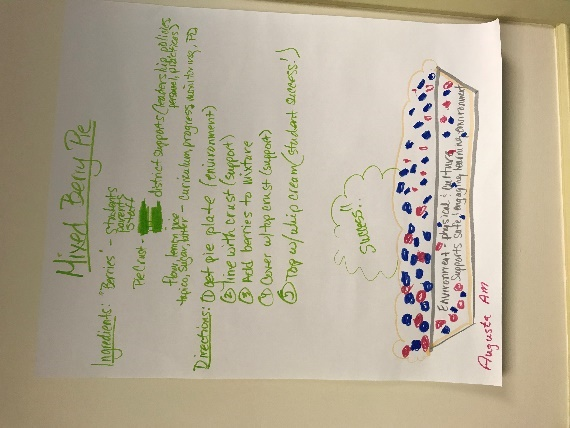 Mixed Berry Pie
Ingredients: "Berries" - students
parents
staff
Pie Crust - district supports (leadership, policies
personnel, practices)
flour, lemon juice
sugar, butter - curriculum, progress monitoring, PD
Directions: ① Get pie plate (environment)
② Line with crust (support)
③ Add berries to mixture
④ Cover w/ top crust (support)
⑤ Top w/ whip cream (student success!)
Success!
Environment - physical & culture
Supports safe, engaging learning environment
Augusta Am